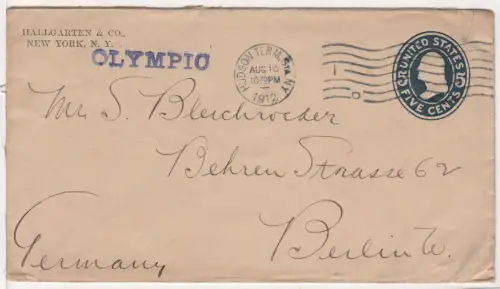 HALLGARTEN & CO.,
NEW YORK, N. Y.
OLYMPIC
HUDSON TERM. Sta. N.Y.
AUG 16
1912
UNITED STATES
FIVE CENTS
Mr S. Bleichroeder
Behren Strasse 62
Berlin W.
Germany